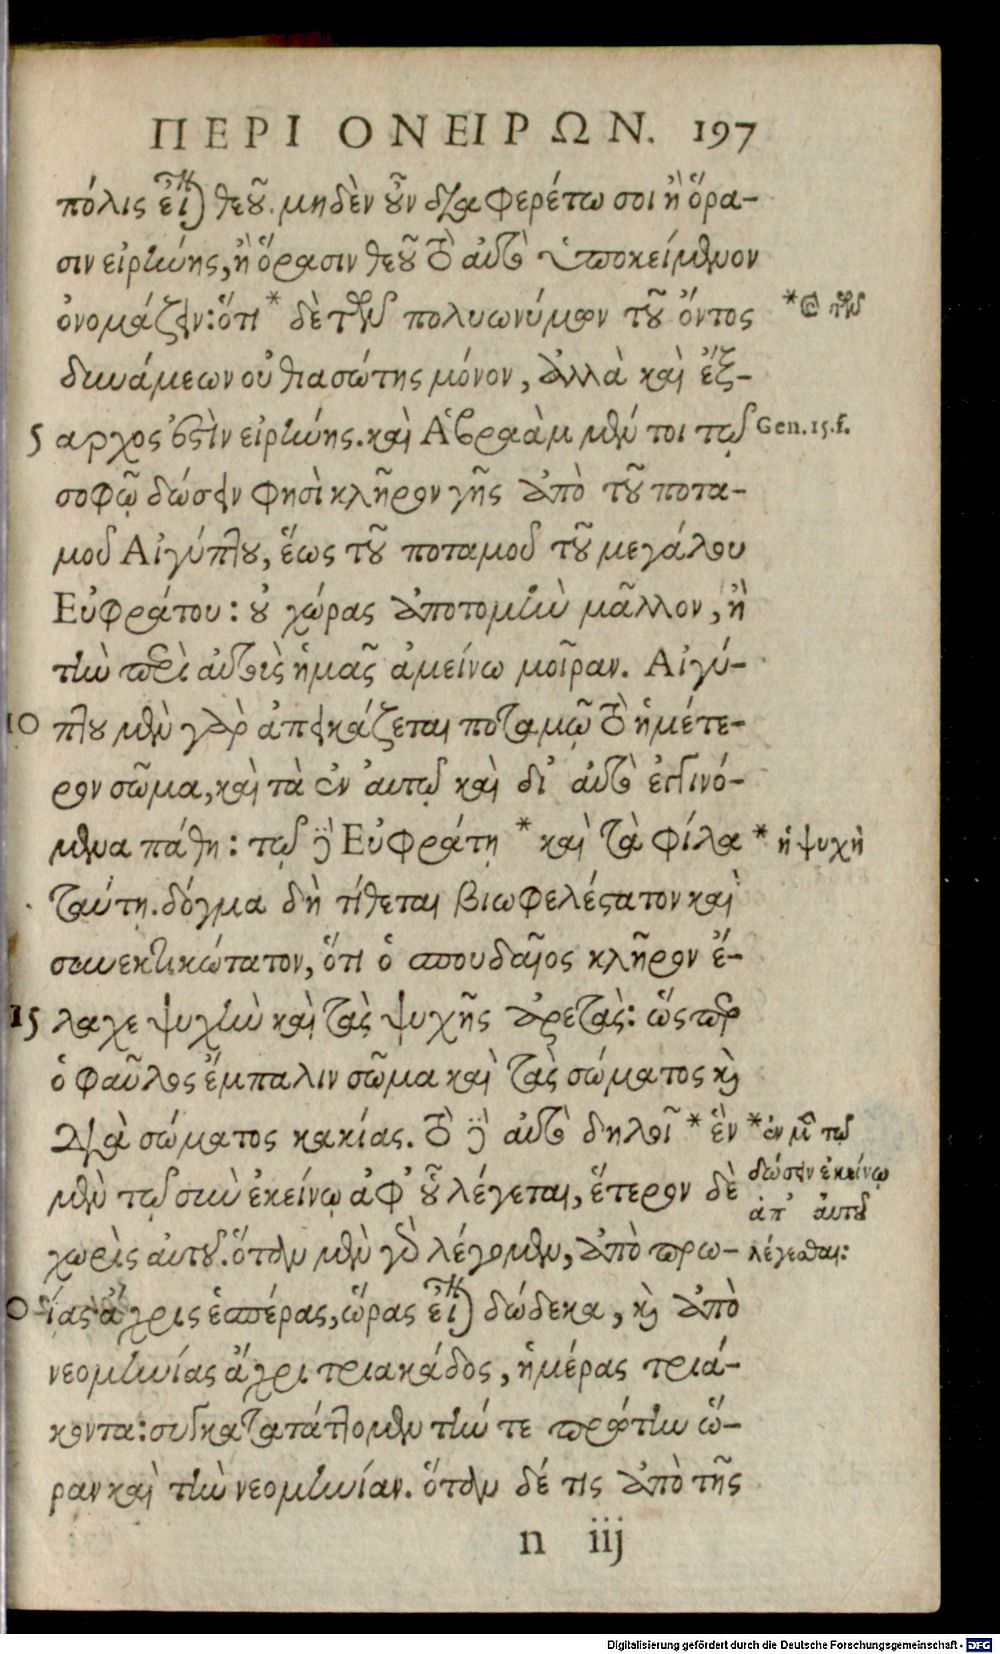 ΠΕΡΙ ΟΝΕΙΡΩΝ. 197
πόλις εἶναι θεοῦ. μηδὲν οὖν διαφερέτω σοι ἢ ὅρα-
σιν εἰρήνης, ἢ ὅρασιν θεοῦ τὸ αὐτὸ ὑποκείμενον
ὀνομάζειν: ὅτι * δὲ τῶν πολυωνύμων τοῦ ὄντος *
δυνάμεων οὐ θιασώτης μόνον, ἀλλὰ καὶ ἔξ-
5 αρχος ἐστὶν εἰρήνης. καὶ Ἀβραὰμ μέν τοι τῷ Gen. 15. f.
σοφῷ δώσειν φησὶ κλῆρον γῆς ἀπὸ τοῦ ποτα-
μοῦ Αἰγύπτου, ἕως τοῦ ποταμοῦ τοῦ μεγάλου
Εὐφράτου: οὐ χώρας ἀποτομὴν μᾶλλον, ἢ
τὴν περὶ αὐτοὺς ἡμᾶς ἀμείνω μοῖραν. Αἰγύ-
10 πτου μὲν γὰρ ἀπεικάζεται ποταμῷ τὸ ἡμέτε-
ρον σῶμα, καὶ τὰ ἐν αὐτῷ καὶ δι' αὐτὸ ἐγγινό-
μενα πάθη: τῷ δὲ Εὐφράτῃ * καὶ τὰ φίλα * ἡ ψυχὴ
ταύτῃ. δόγμα δὴ τίθεται βιωφελέστατον καὶ
συνεκτικώτατον, ὅτι ὁ σπουδαῖος κλῆρον ἔ-
15 λαχε ψυχὴν καὶ τὰς ψυχῆς ἀρετὰς: ὥσπερ
ὁ φαῦλος ἔμπαλιν σῶμα καὶ τὰς σώματος καὶ
διὰ σώματος κακίας. τὸ δὲ αὐτὸ δηλοῖ * ἓν * ἐν μὲν τῷ
μὲν τῷ σὺν ἐκείνῳ ἀφ' οὗ λέγεται, ἕτερον δὲ δώσειν ἐκείνῳ
ἀπ' αὐτοῦ
χωρὶς αὐτοῦ. ὅταν μὲν γὰρ λέγωμεν, ἀπὸ πρω- λέγεσθαι:
ΐας ἄχρις ἑσπέρας, ὥρας εἶναι δώδεκα, καὶ ἀπὸ
νεομηνίας ἄχρι τριακάδος, ἡμέρας τριά-
κοντα: συγκατατάττομεν τήν τε πρώτην ὥ-
ραν καὶ τὴν νεομηνίαν. ὅταν δέ τις ἀπὸ τῆς
n iij
Digitalisierung gefördert durch die Deutsche Forschungsgemeinschaft - DFG